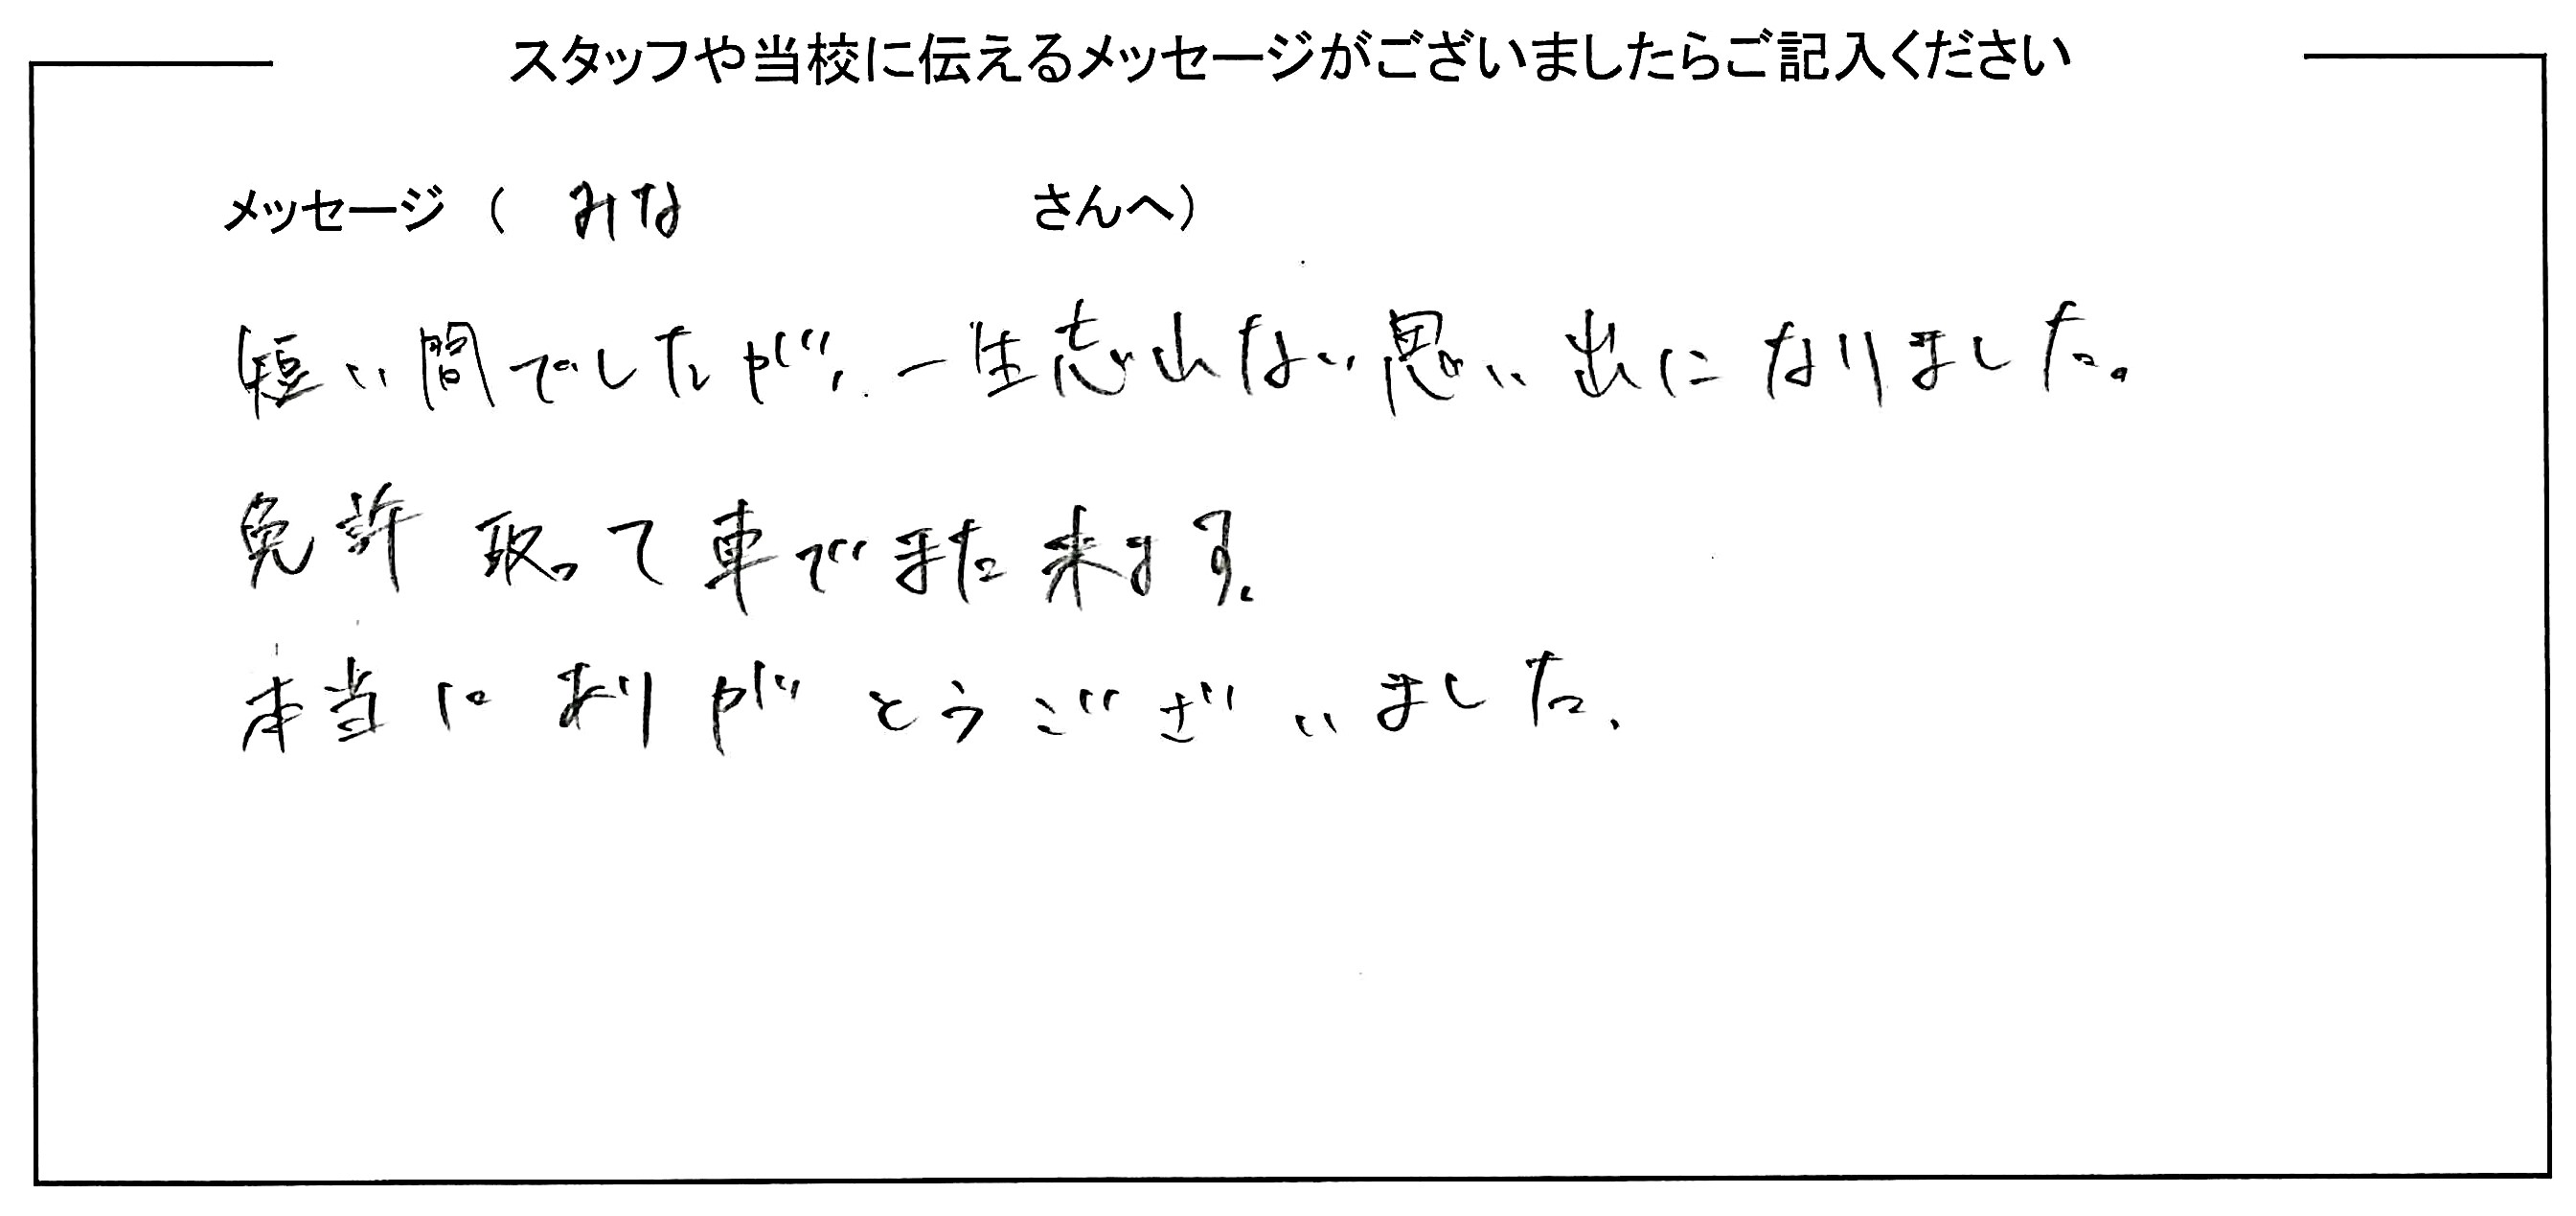 スタッフや当校に伝えるメッセージがございましたらご記入ください
メッセージ（ みな さんへ）
短い間でしたが、一生忘れない思い出になりました。
免許取って車でまた来ます。
本当にありがとうございました。